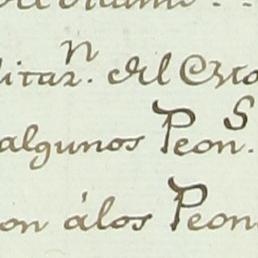 litar.ⁿ del Esta
algunos Peon.ˢ
on álos Peon